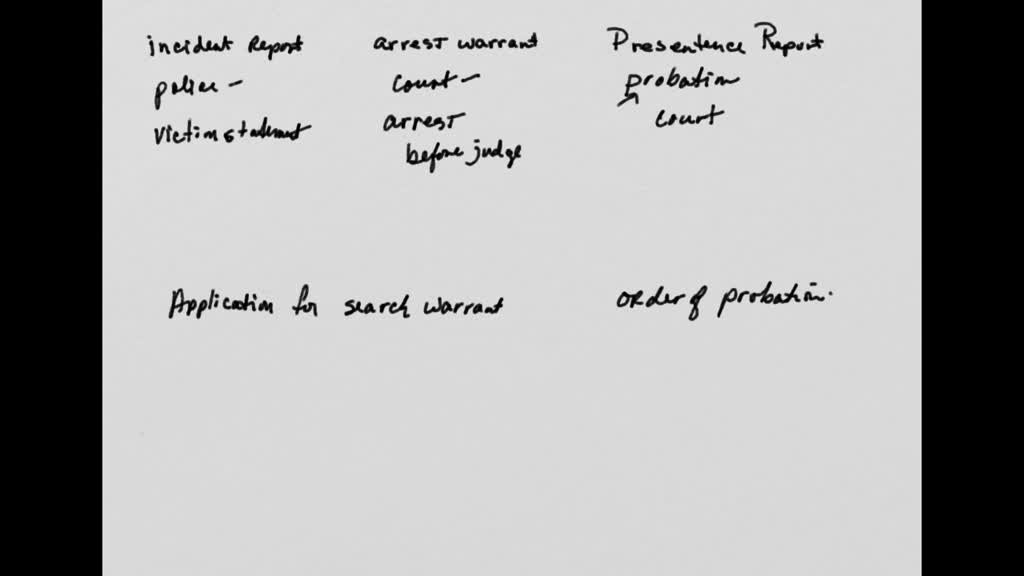 incident Report
police -
victim statement
arrest warrant
Court -
arrest
before judge
Presentence Report
probation
court
Application for search warrant
order of probation.